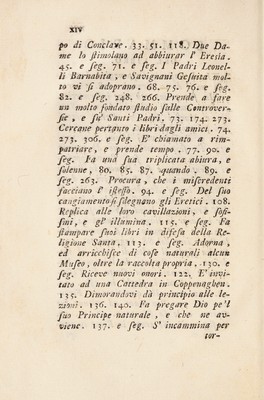 XIV
po di Conclave. 33. 51. 118. Due Da-
me lo stimolano ad abbiurar l' Eresia.
45. e seg. 71. e seg. I Padri Leonel-
li Barnabita, e Savignani Gesuita mol-
to vi si adoprano. 68. 75. 76. e seg.
82. e seg. 248. 266. Prende a fare
un molto fondato studio sulle Controver-
sie, e su' Santi Padri. 73. 174. 273.
Cercane pertanto i libri dagli amici. 74.
273. 306. e seg. E' chiamato a rim-
patriare, e prende tempo. 77. 90. e
seg. Fa una sua triplicata abiura, e
solenne, 80. 85. 87. quando. 89. e
seg. 263. Procura, che i miscredenti
facciano l' istesso. 94. e seg. Del suo
cangiamento si sdegnano gli Eretici. 108.
Replica alle loro cavillazioni, e sof-
fini, e gl' illumina. 115. e seg. Fa
stampare suoi libri in difesa della Re-
ligione Santa. 113. e seg. Adorna,
ed arricchisce di cose naturali alcun
Museo, oltre la raccolta propria. 130. e
seg. Riceve nuovi onori. 122. E' invi-
tato ad una Cattedra in Coppenaghen.
135. Dimorandovi dà principio alle le-
zioni. 136. 140. Fa pregare Dio pe 'l
suo Principe naturale, e che ne av-
viene. 137. e seg. S' incammina per
tor-